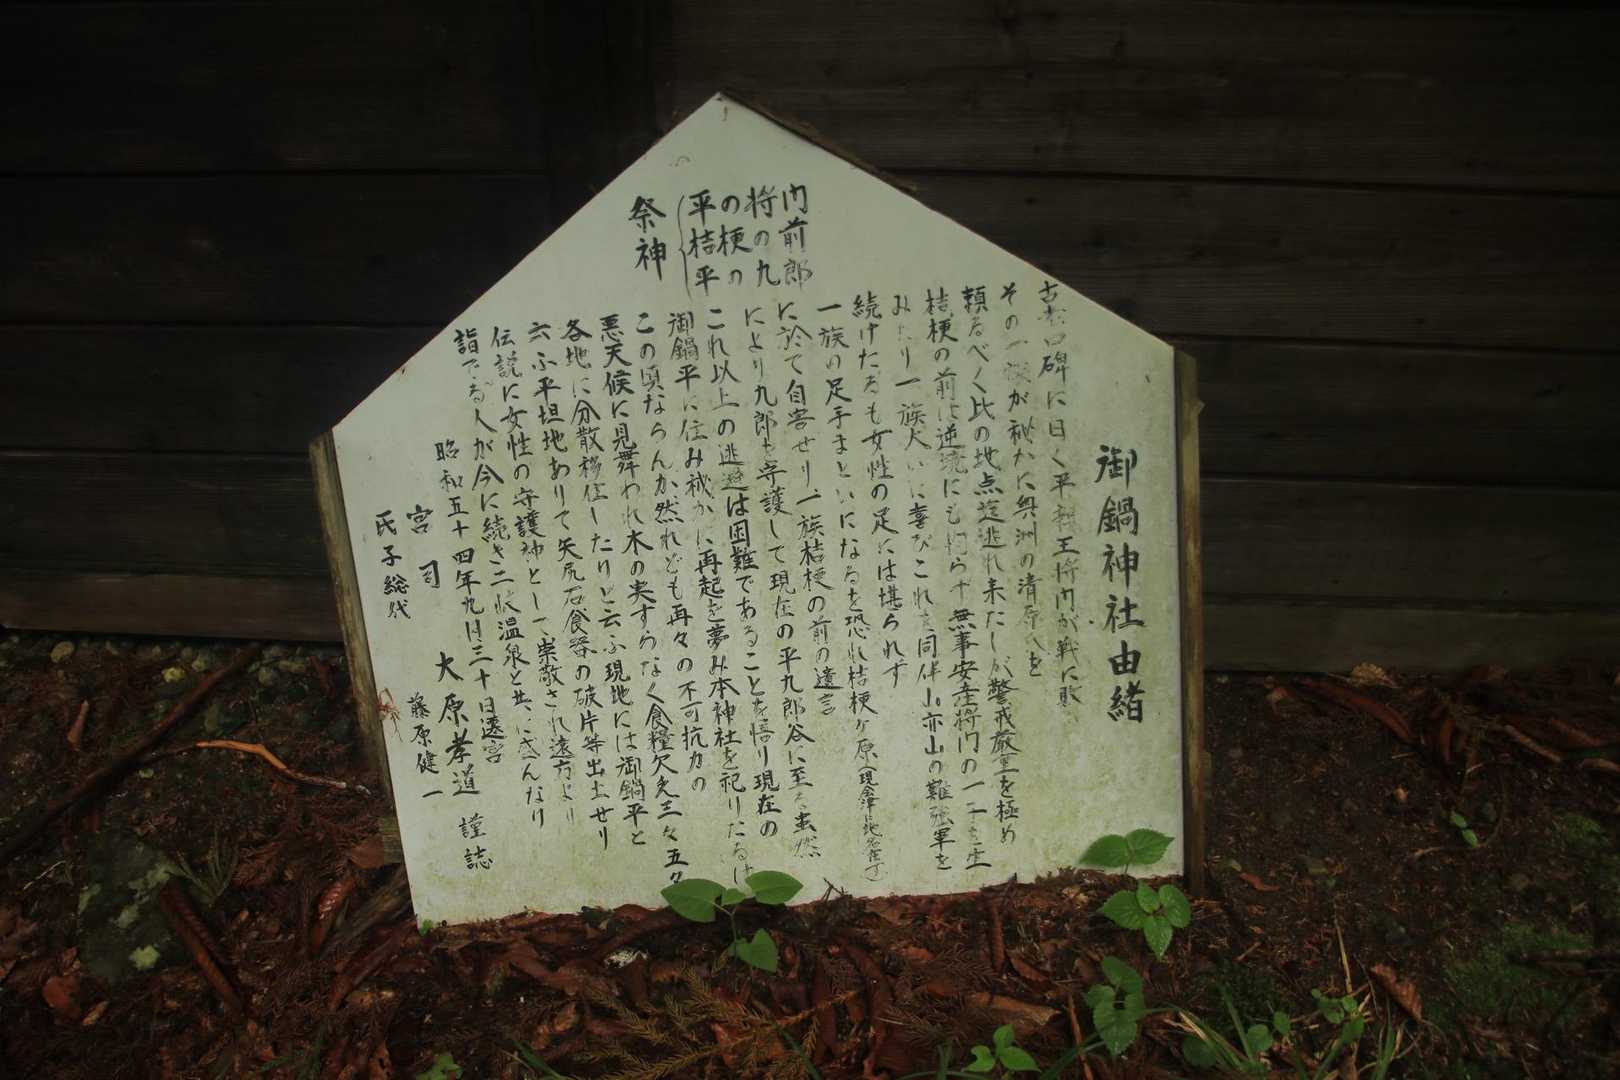 御鍋神社由緒
古老口碑に曰く平親王将門が戦に敗
その一族が秘かに奥州の清原氏を
頼るべく比の地点迄逃れ来たしが警戒厳重を極め
桔梗の前は逆境にも拘らず無事安産将門の一子を生
みたり一族大いに喜びこれを同伴山亦山の難強軍を
続けたるも女性の足には堪られず
一族の足手まといになるを恐れ桔梗ヶ原(現会津
に於て自害せり一族桔梗の前の遺言
により九郎を守護して現在の平九郎谷に至る虽然
これ以上の逃避は困難であることを悟り現在の
御鍋平に住み秘かに再起を夢み本神社を祀りたるは
この頃ならんか然れども再々の不可抗力の
悪天候に見舞われ木の実すらなく食糧欠乏三々五々
各地に分散移住したりと云ふ現地には御鍋平と
云ふ平坦地ありて矢尻石食器の破片等出土せり
伝説に女性の守護神として崇敬され遠方より
詣でる人が今に続き二岐温泉と共にさんなり
祭神
平桔平
の梗の
将の九
門前郎
昭和五十四年九月三十日遷宮
宮司 大原孝道 謹誌
氏子総代 藤原健一